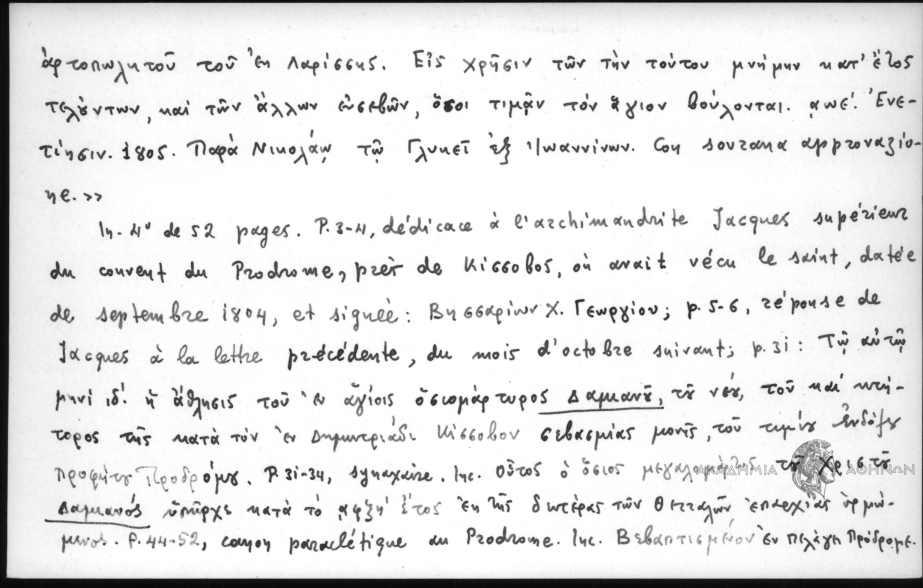 ἀρτοπωλητοῦ τοῦ ἐν Λαρίσσῃ. Εἰς χρῆσιν τῶν τὴν τούτου μνήμην κατ' ἔτος
τελούντων, καὶ τῶν ἄλλων εὐσεβῶν, ὅσοι τιμᾷν τὸν ἅγιον βούλονται. ͵αωε΄. Ἐνε-
τίησιν. 1805. Παρὰ Νικολάῳ τῷ Γλυκεῖ ἐξ Ἰωαννίνων. Con sovrana approvazio-
ne.>>
In-4° de 52 pages. P.3-4, dédicace à l'archimandrite Jacques supérieur
du couvent du Prodrome, près de Κίσσοβος, où avait vécu le saint, datée
de septembre 1804, et signée: Βησσαρίων Χ. Γεωργίου; p.5-6, réponse de
Jacques à la lettre précédente, du mois d'octobre suivant; p.31: Τῷ αὐτῷ
μηνὶ ιδ΄. ἡ ἄθλησις τοῦ ἐν ἁγίοις ὁσιομάρτυρος Δαμιανοῦ, τοῦ νέου, τοῦ καὶ κτή-
τορος τῆς κατὰ τὸν ἐν Δημητριάδι Κίσσοβον σεβασμίας μονῆς, τοῦ τιμίου ἐνδόξου
Προφήτου Προδρόμου. P.31-34, synaxaire. Inc. Οὗτος ὁ ὅσιος μεγαλομάρτυς τοῦ Χριστοῦ
ΑΚΑΔΗΜΙΑ ΑΘΗΝΩΝ
Δαμιανὸς ὑπῆρχε κατὰ τὸ ͵αφξη΄ ἔτος ἐκ τῆς δευτέρας τῶν Θετταλῶν ἐπαρχίας ὁρμώ-
μενος. P.44-52, canon paraclétique au Prodrome. Inc. Βεβαπτισμένον ἐν πελάγει Πρόδρομε.